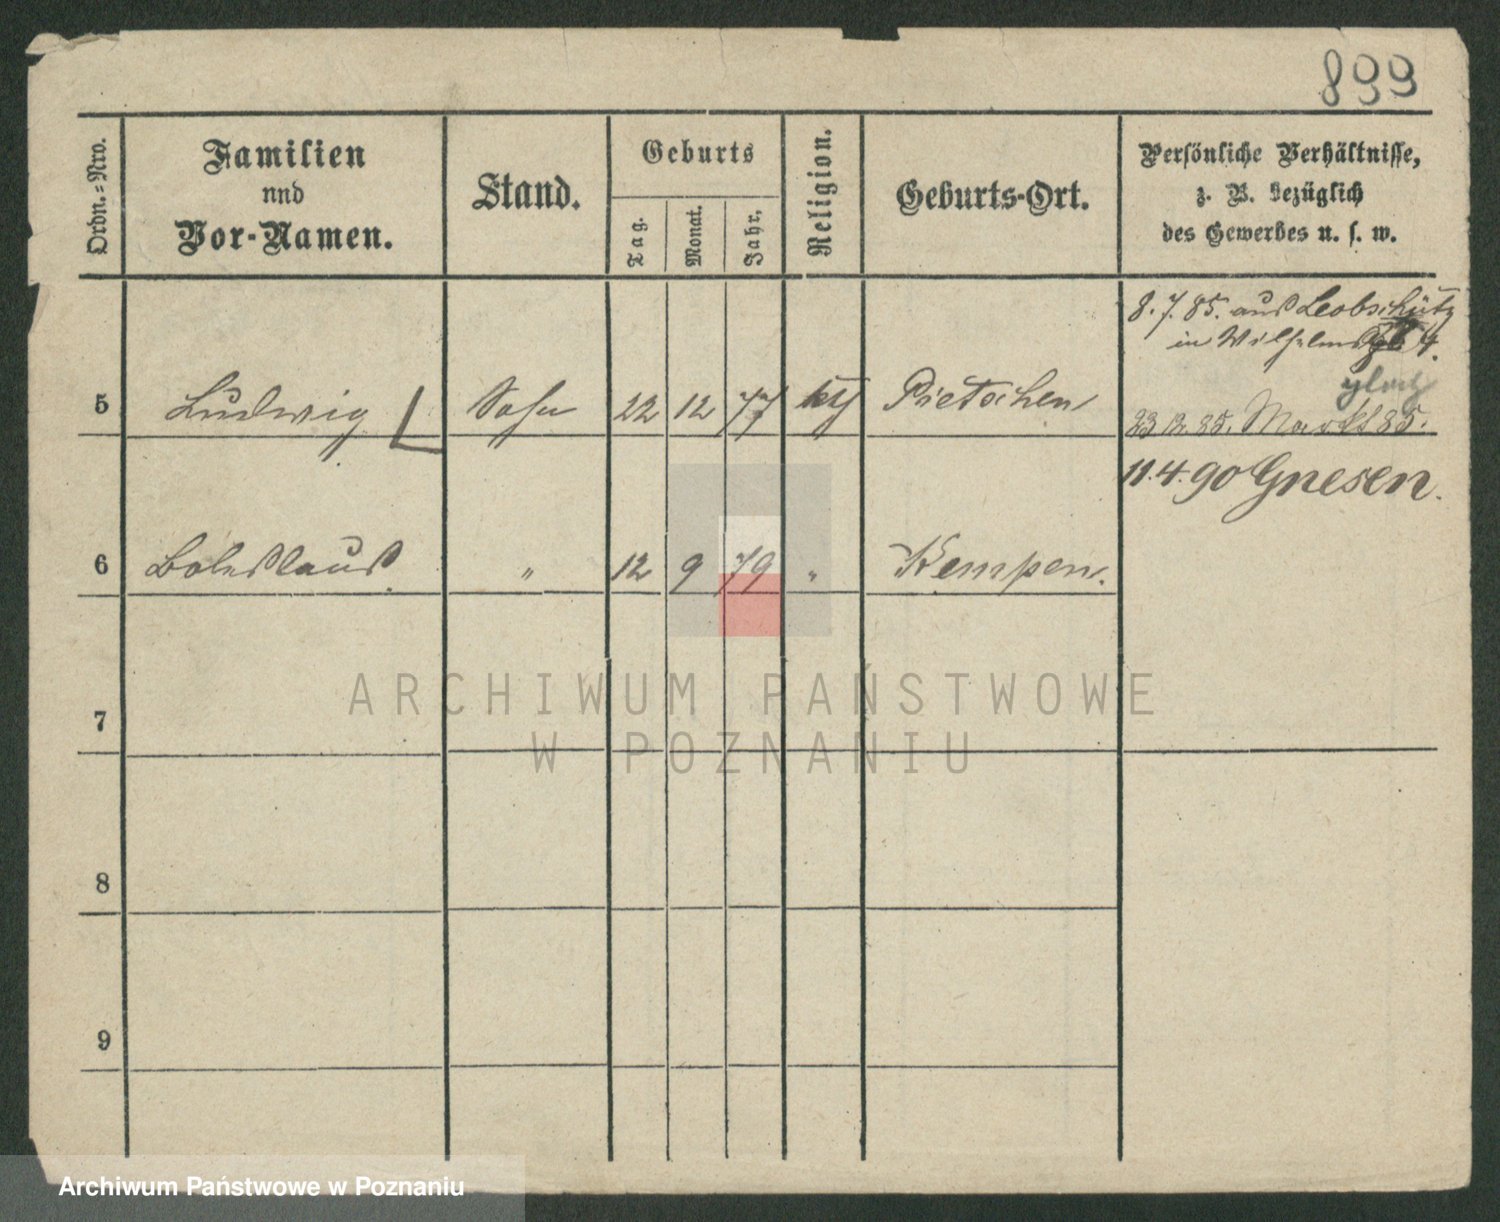 899
Ordn.=Nro.
Familien
und
Vor-Namen.
Stand.
Geburts
Tag.
Monat.
Jahr.
Religion.
Geburts-Ort.
Persönliche Verhältnisse,
z. B. bezüglich
des Gewerbes u. s. w.
8. 7. 85. aus Leobschütz
in Wilhelms 4.
5 Ludwig Sohn 22 12 77 kth Pietschen
23 12. 85. Markt 85.
11. 4. 90 Gnesen.
6 Boleslaus " 12 9 79 " Kempen.
7
8
9
ARCHIWUM PAŃSTWOWE
W POZNANIU
Archiwum Państwowe w Poznaniu